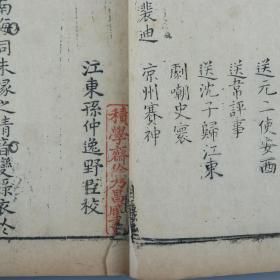 送元二使安西
送常評事
送沈子歸江東
劇嘲史寰
涼州賽神
裴迪
積學齋徐乃昌藏書
江東孫仲逸野臣校
南海同朱之清音變綠衣於